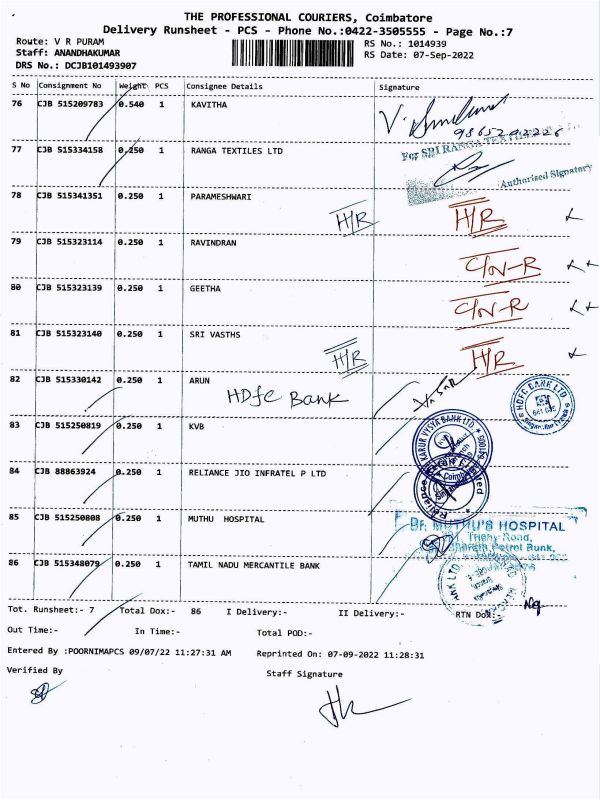 THE PROFESSIONAL COURIERS, Coimbatore
Delivery Runsheet - PCS - Phone No.:0422-3505555 - Page No.:7
Route: V R PURAM
RS No.: 1014939
Staff: ANANDHAKUMAR
RS Date: 07-Sep-2022
DRS No.: DCJB101493907
S No Consignment No Weight PCS Consignee Details Signature
76 CJB 515209783 0.540 1 KAVITHA
77 CJB 515334158 0.250 1 RANGA TEXTILES LTD
For SRI RANGA
Authorised Signatory
78 CJB 515341351 0.250 1 PARAMESHWARI
H/R H/R
79 CJB 515323114 0.250 1 RAVINDRAN
C/N-R
80 CJB 515323139 0.250 1 GEETHA
C/N-R
81 CJB 515323140 0.250 1 SRI VASTHS
H/R H/R
82 CJB 515330142 0.250 1 ARUN
HDFC Bank
HDFC BANK LTD
83 CJB 515250819 0.250 1 KVB
KARUR VYSYA BANK LTD.
84 CJB 88863924 0.250 1 RELIANCE JIO INFRATEL P LTD
Reliance
85 CJB 515250808 0.250 1 MUTHU HOSPITAL
Dr. MUTHU'S HOSPITAL
Trichy Road,
Petrol Bunk,
86 CJB 515348079 0.250 1 TAMIL NADU MERCANTILE BANK
Tot. Runsheet:- 7 Total Dox:- 86 I Delivery:- II Delivery:- RTN Dox:-
Out Time:- In Time:- Total POD:-
Entered By :POORNIMAPCS 09/07/22 11:27:31 AM Reprinted On: 07-09-2022 11:28:31
Verified By
Staff Signature